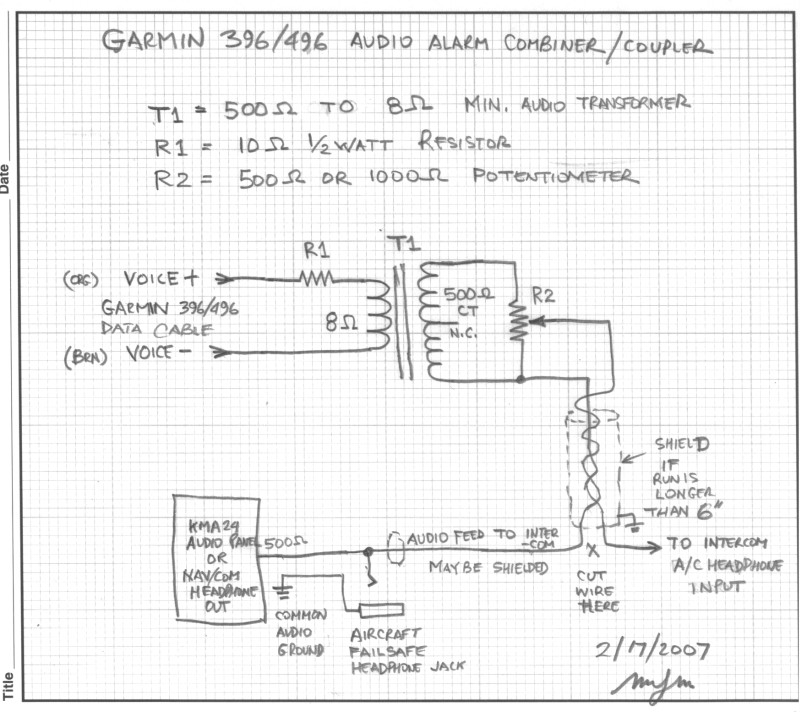 GARMIN 396/496 AUDIO ALARM COMBINER/COUPLER
T1 = 500Ω TO 8Ω MIN. AUDIO TRANSFORMER
R1 = 10Ω 1/2 WATT RESISTOR
R2 = 500Ω OR 1000Ω POTENTIOMETER
Date
R1
T1
(ORG) VOICE +
GARMIN 396/496
DATA CABLE
(BRN) VOICE -
8Ω
500Ω
CT
N.C.
R2
SHIELD
IF
RUN IS
LONGER
THAN 6"
KMA24
AUDIO PANEL
OR
NAV/COM
HEADPHONE
OUT
500Ω
AUDIO FEED TO INTER
-COM
MAY BE SHIELDED
X
CUT
WIRE
HERE
TO INTERCOM
A/C HEADPHONE
INPUT
COMMON
AUDIO
GROUND
AIRCRAFT
FAILSAFE
HEADPHONE JACK
2/17/2007
Title